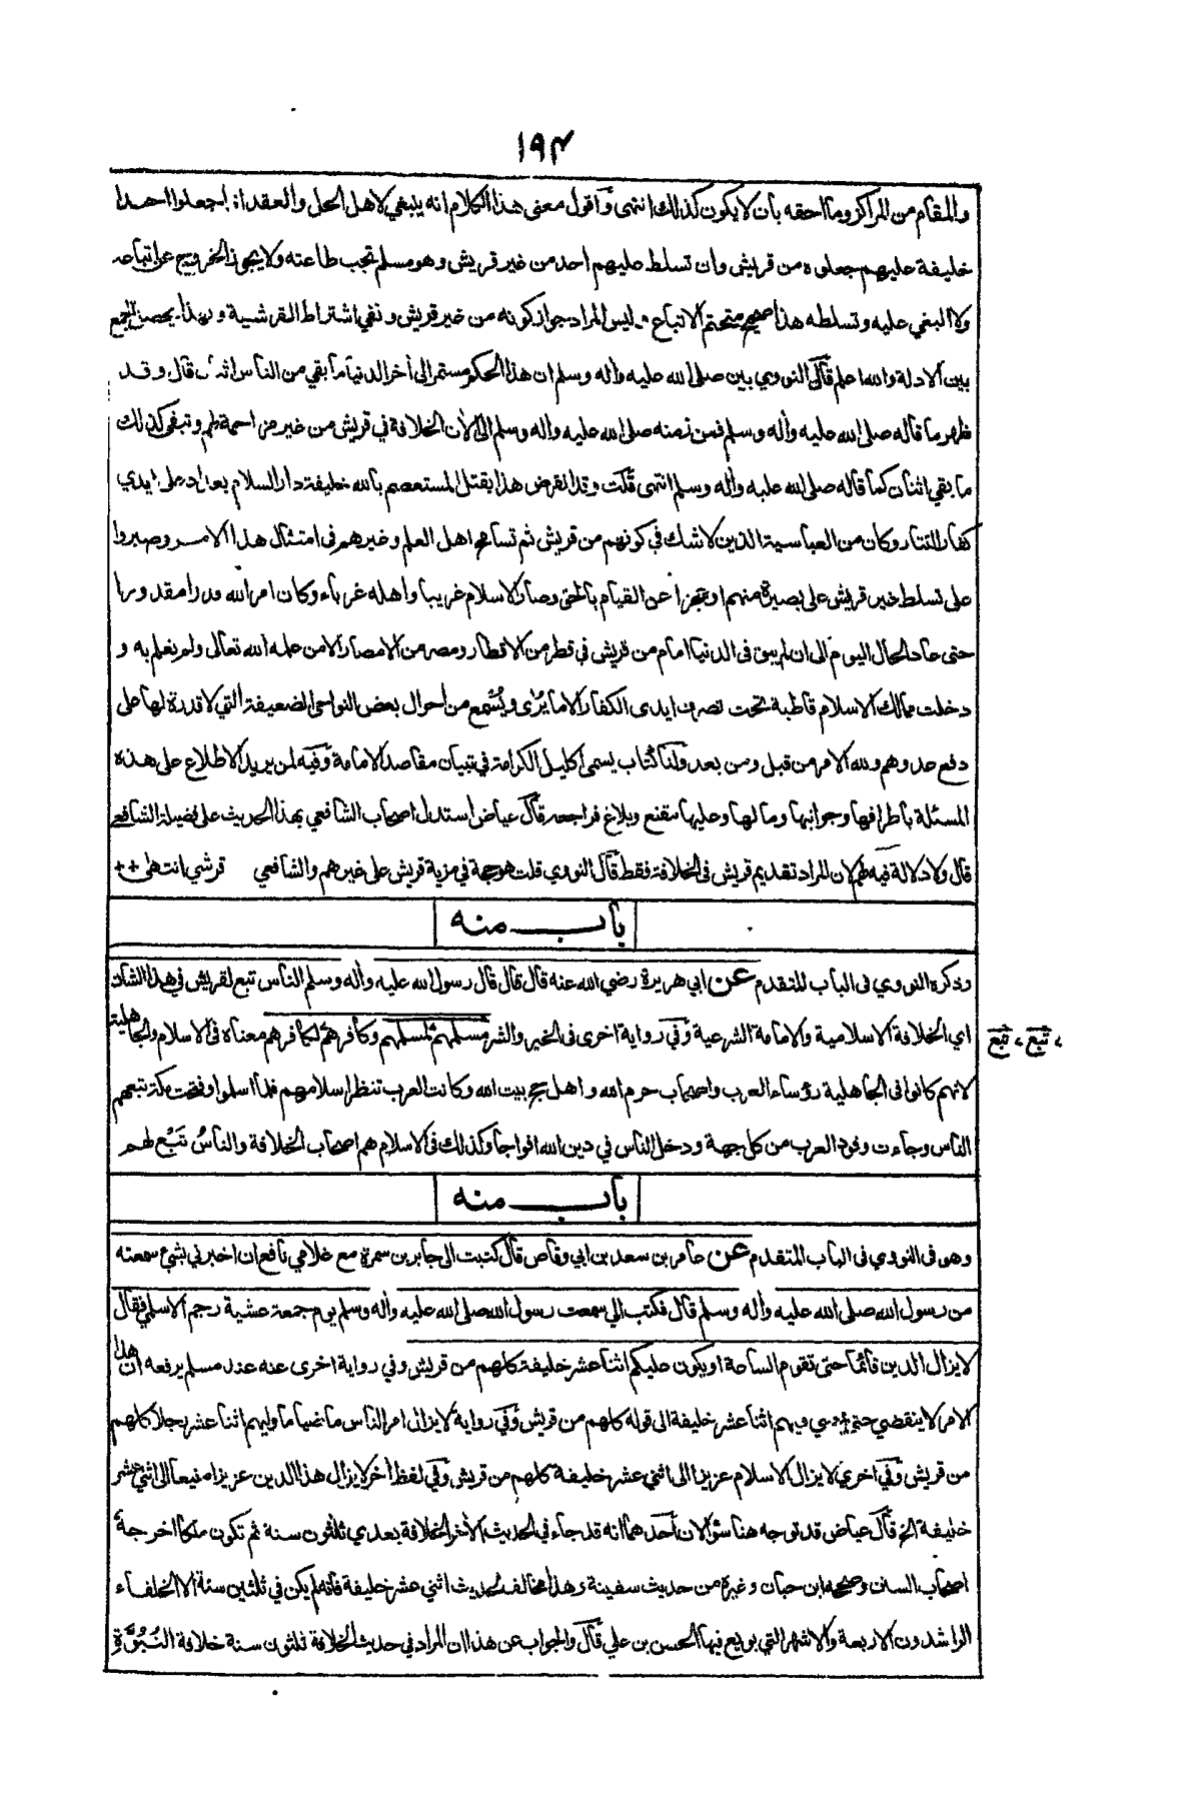 ١٩٣
والمقام من المراكز وما احقه بان لا يكون كذلك انتهى وأقول معنى هذا الكلام انه ينبغي لاهل الحل والعقد اذا جعلوا احدا
خليفة عليهم جعلوه من قريش وان تسلط عليهم احد من غير قريش وهو مسلم تجب طاعته ولا يجوز الخروج عن اتباعه
ولا البغي عليه وتسلطه هذا صحيح متحتم الاتباع وليس المراد جواز كونه من غير قريش ونفي اشتراط القرشية وبهذا يحصل الجمع
بين الادلة والله اعلم قال النووي بين صلى الله عليه وأله وسلم ان هذا الحكم مستمر الى أخر الدنيا ما بقي من الناس اثنان قال وقد
ظهر ما قاله صلى الله عليه وأله وسلم فمن زمنه صلى الله عليه وأله وسلم الى الأن الخلافة في قريش من غير مزاحمة لهم وتبقى كذلك
ما بقي اثنان كما قاله صلى الله عليه وأله وسلم انتهى قلت وقد انقرض هذا بقتل المستعصم بالله خليفة دار السلام بغداد على ايدي
كفار التتار وكان من العباسية الذين لا شك في كونهم من قريش ثم تسامح اهل العلم وغيرهم في امتثال هذا الامر وصبروا
على تسلط غير قريش على بصيرة منهم او عجزا عن القيام بالحق وصار الاسلام غريبا واهله غرباء وكان امر الله قدرا مقدورا
حتى عاد الحال اليوم الى ان لم يبق فى الدنيا امام من قريش في قطر من الاقطار ومصر من الامصار الا من علمه الله تعالى ولم نعلم به و
دخلت ممالك الاسلام قاطبة تحت تصرف ايدى الكفار الا ما يُرٰى ويُسْمع من احوال بعض النواحى الضعيفة التي لا قدرة لها على
دفع عدوهم ولله الامر من قبل ومن بعد ولنا كتاب يسمى اكليل الكرامة في تبيان مقاصد الامامة وفيه لمن يريد الاطلاع على هذه
المسئلة باطرافها وجوانبها وما لها وعليها مقنع وبلاغ فراجعه قال عياض استدل اصحاب الشافعي بهذا الحديث على فضيلة الشافعي
قال ولا دلالة فيه لهم لان المراد تقديم قريش فى الخلافة فقط قال النووي قلت هو حجة في مزية قريش على غيرهم والشافعي قرشي انتهى ++
باب منه
وذكره النووي فى الباب المتقدم عن ابي هريرة رضي الله عنه قال قال قال رسول الله عليه وأله وسلم الناس تبع لقريش في هذا الشان
اي الخلافة الاسلامية والامامة الشرعية وفي رواية اخرى فى الخير والشر مسلمهم لمسلمهم وكافرهم لكافرهم معناه فى الاسلام والجاهلية
، تَبَع ، تبع
لانهم كانوا فى الجاهلية رؤساء العرب واصحاب حرم الله واهل حج بيت الله وكانت العرب تنظر اسلامهم فلما اسلموا وفتحت مكة تبعهم
الناس وجاءت وفود العرب من كل جهة ودخل الناس في دين الله افواجا وكذلك فى الاسلام هم اصحاب الخلافة والناسُ تَبَعٌ لهم
باب منه
وهو فى النووي فى الباب المتقدم عن عامر بن سعد بن ابي وقاص قال كتبت الى جابر بن سمرة مع غلامي نافع ان اخبرني بشئ سمعته
من رسول الله صلى الله عليه وأله وسلم قال فكتب الي سمعت رسول الله صلى الله عليه وأله وسلم يوم جمعة عشية رجم الاسلمي فقال
لا يزال الدين قائما حتى تقوم الساعة او يكون عليكم اثنا عشر خليفة كلهم من قريش وفي رواية اخرى عنه عند مسلم يرفعه ان هذا
الامر لا ينقضي حتى يمضي فيهم اثنا عشر خليفة الى قوله كلهم من قريش وفي رواية لا يزال امر الناس ماضيا ما وليهم اثنا عشر رجلا كلهم
من قريش وفي اخرى لا يزال الاسلام عزيزا الى اثني عشر خليفة كلهم من قريش وفي لفظ أخر لا يزال هذا الدين عزيزا منيعا الى اثني عشر
خليفة الخ قال عياض قد توجه هنا سؤالان أحدهما انه قد جاء في الحديث الأخر الخلافة بعدي ثلثون سنة ثم تكون ملكا اخرجه
اصحاب السنن وصححه ابن حبان وغيره من حديث سفينة وهذا مخالف لحديث اثني عشر خليفة فانه لم يكن في ثلثين سنة الا الخلفاء
الراشدون الاربعة والاشهر التي بويع فيها الحسن بن علي قال والجواب عن هذا ان المراد في حديث الخلافة ثلثون سنة خلافة النُبُوَّة